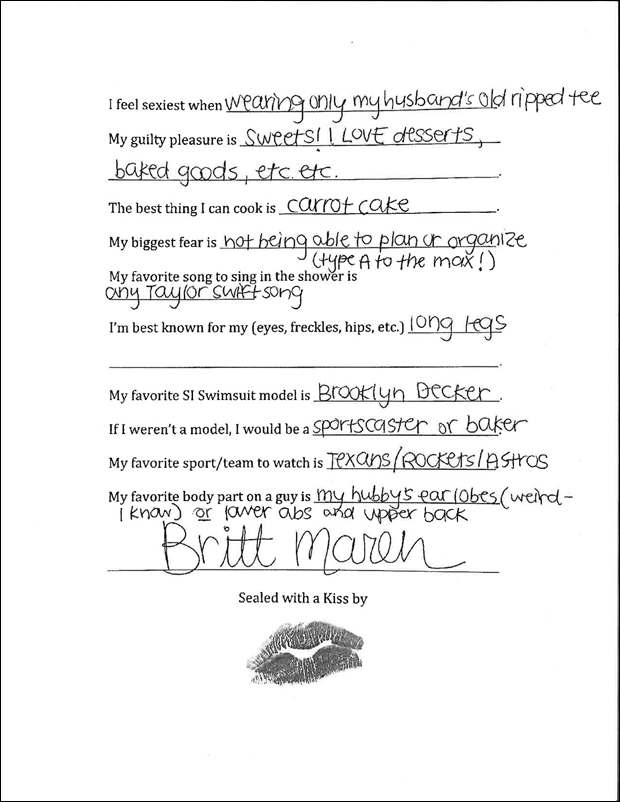 I feel sexiest when wearing only my husband's old ripped tee
My guilty pleasure is sweets! I LOVE desserts,
baked goods, etc. etc.
The best thing I can cook is carrot cake.
My biggest fear is not being able to plan or organize
(type A to the max!)
My favorite song to sing in the shower is
any Taylor Swift song
I'm best known for my (eyes, freckles, hips, etc.) long legs
My favorite SI Swimsuit model is Brooklyn Decker.
If I weren't a model, I would be a sportscaster or baker
My favorite sport/team to watch is Texans/Rockets/Astros
My favorite body part on a guy is my hubby's earlobes (weird-
I know) or lower abs and upper back
Britt Maren
Sealed with a Kiss by